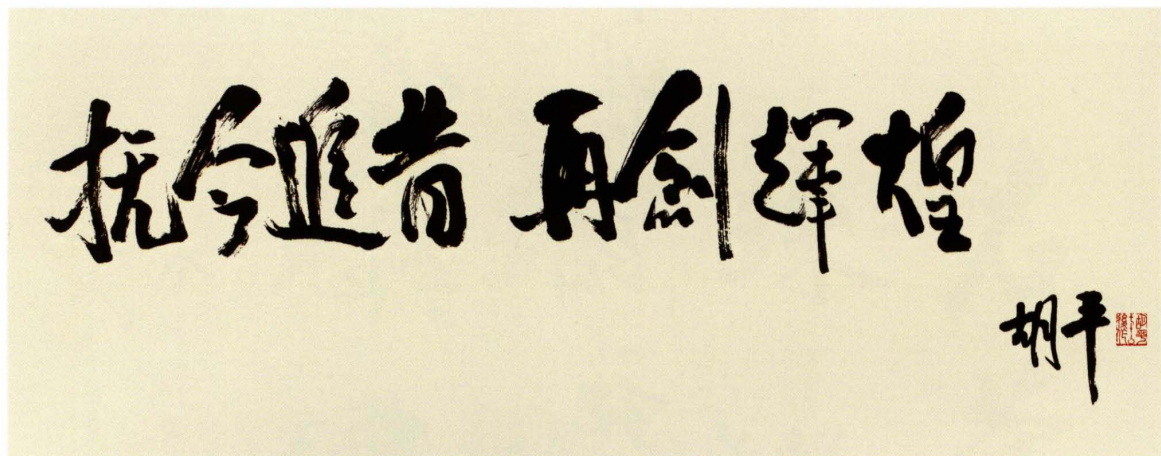 抚今追昔 再创辉煌
胡平